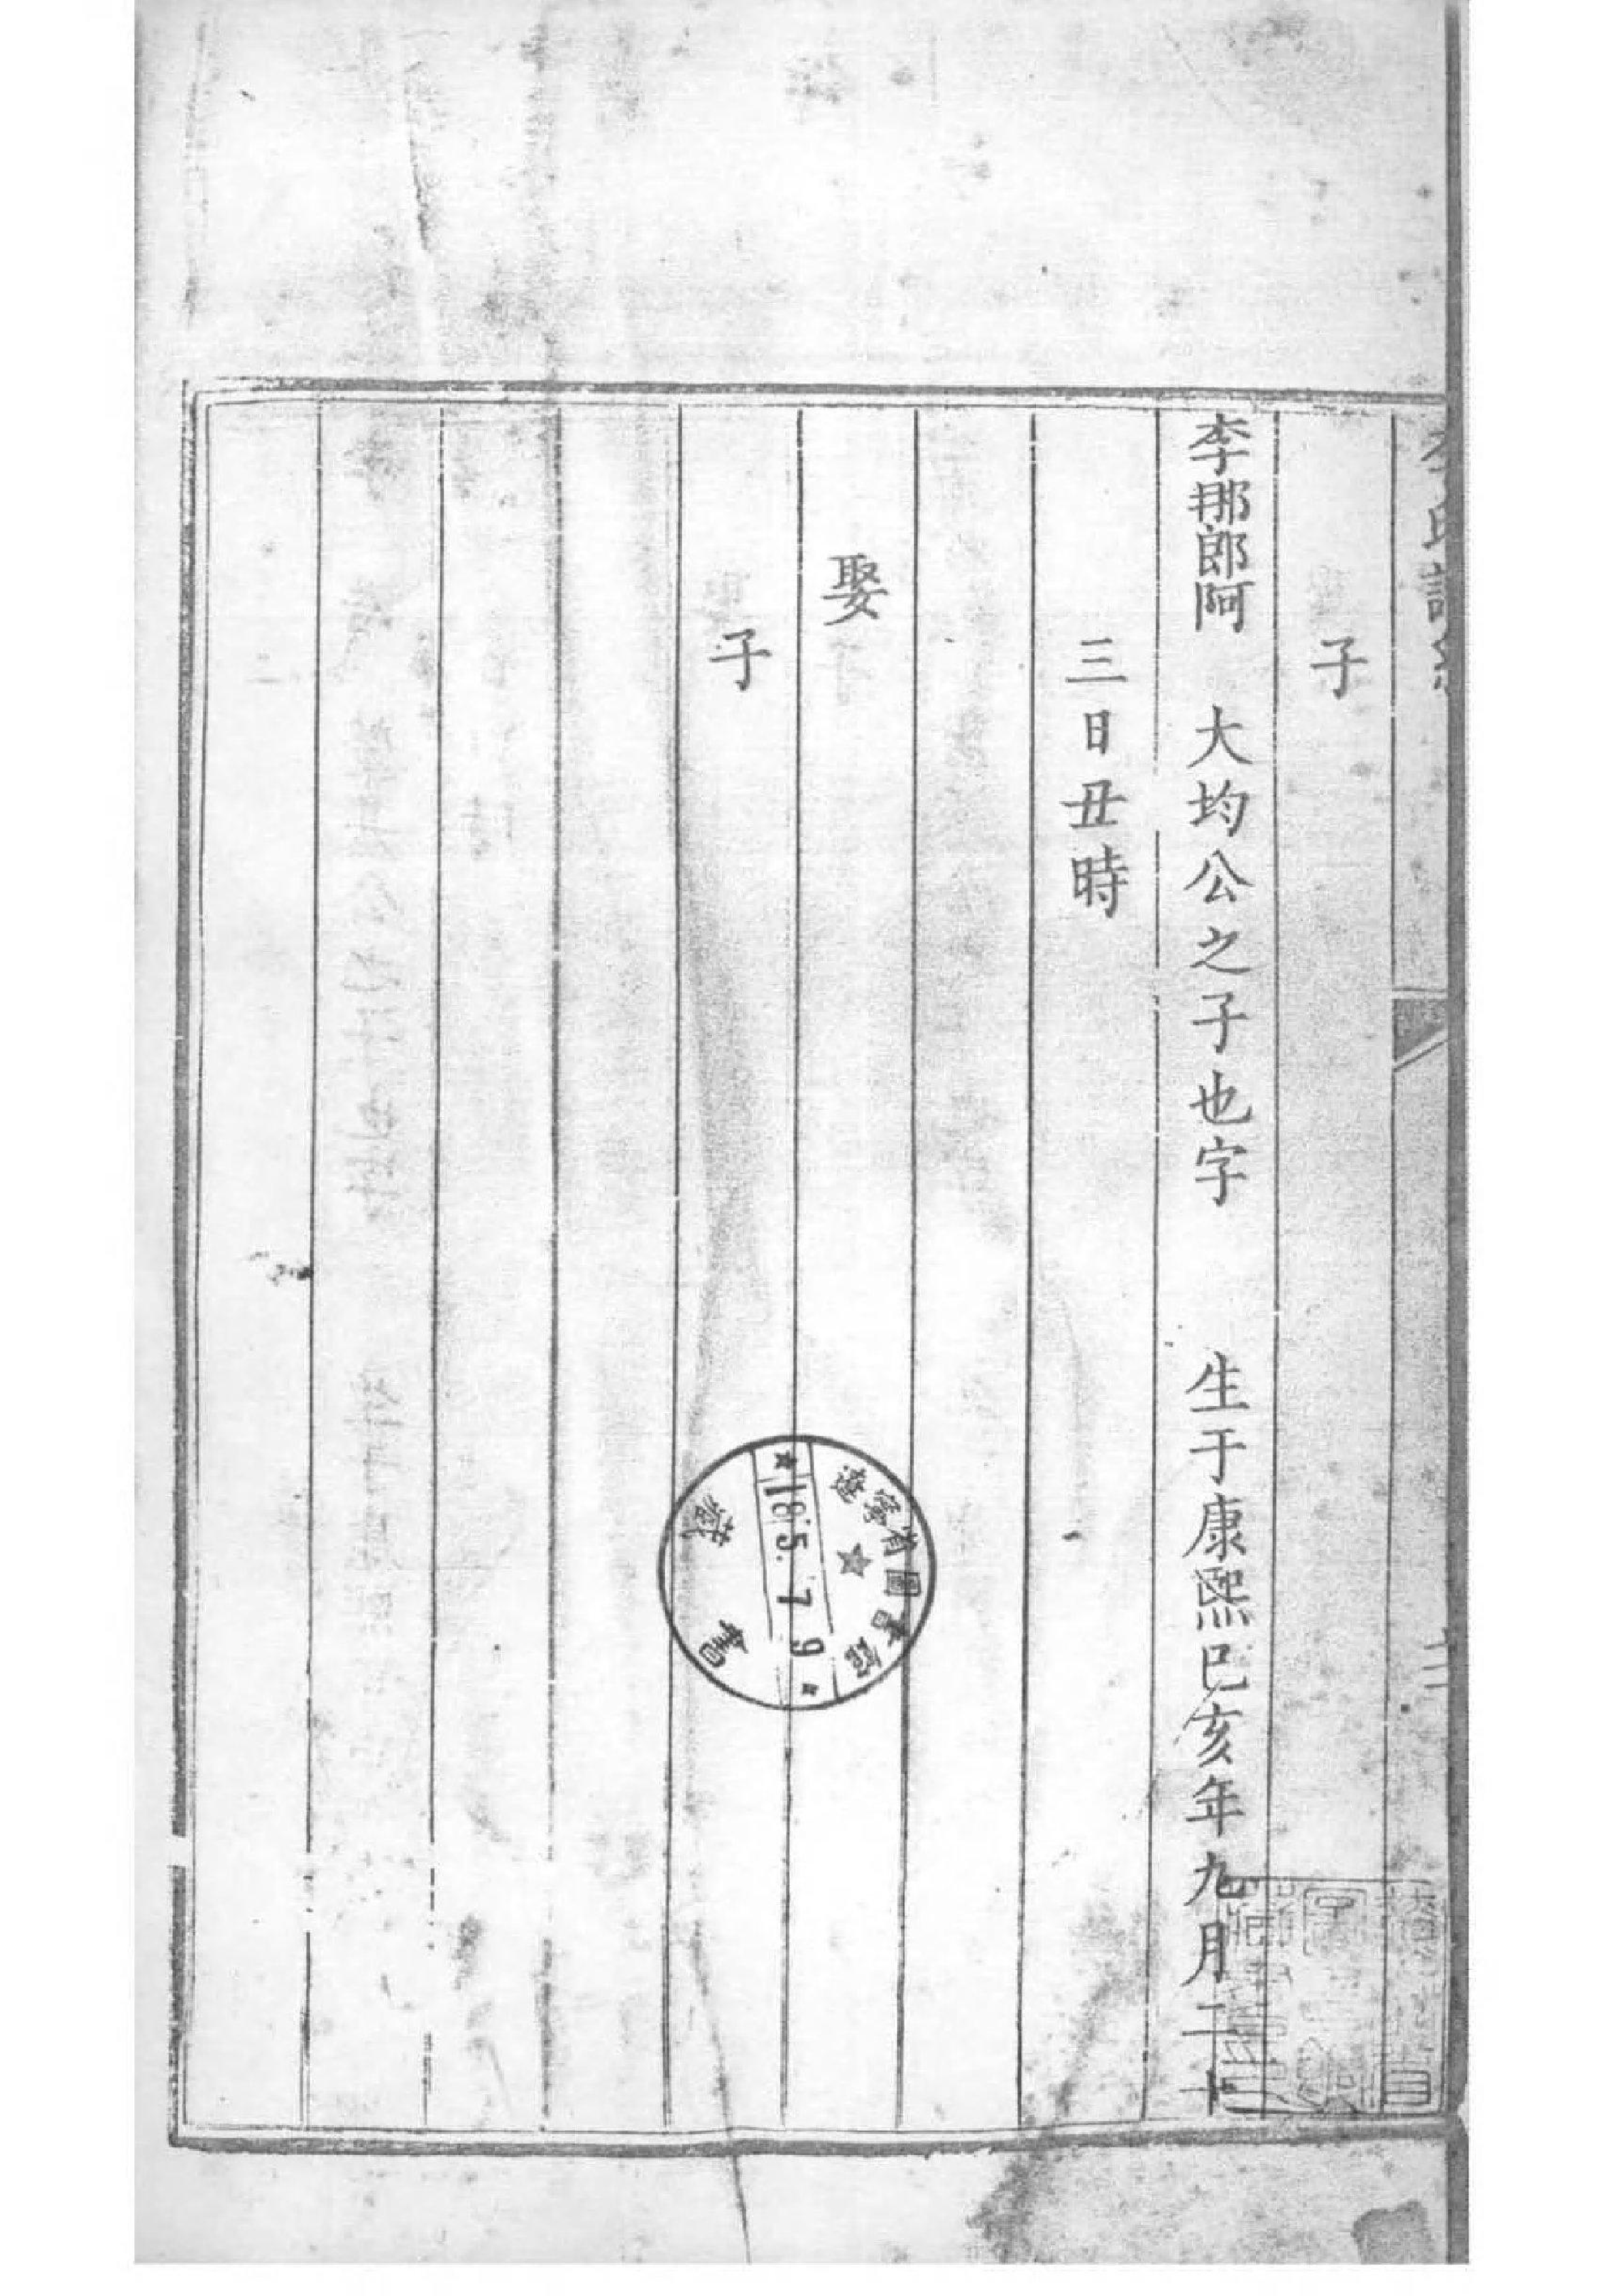 李氏譜系
子
李那郎阿　大均公之子也字　　生于康熙己亥年九月二十
三日丑時
娶
子
遼寧省圖書館
185.7.9
藏書